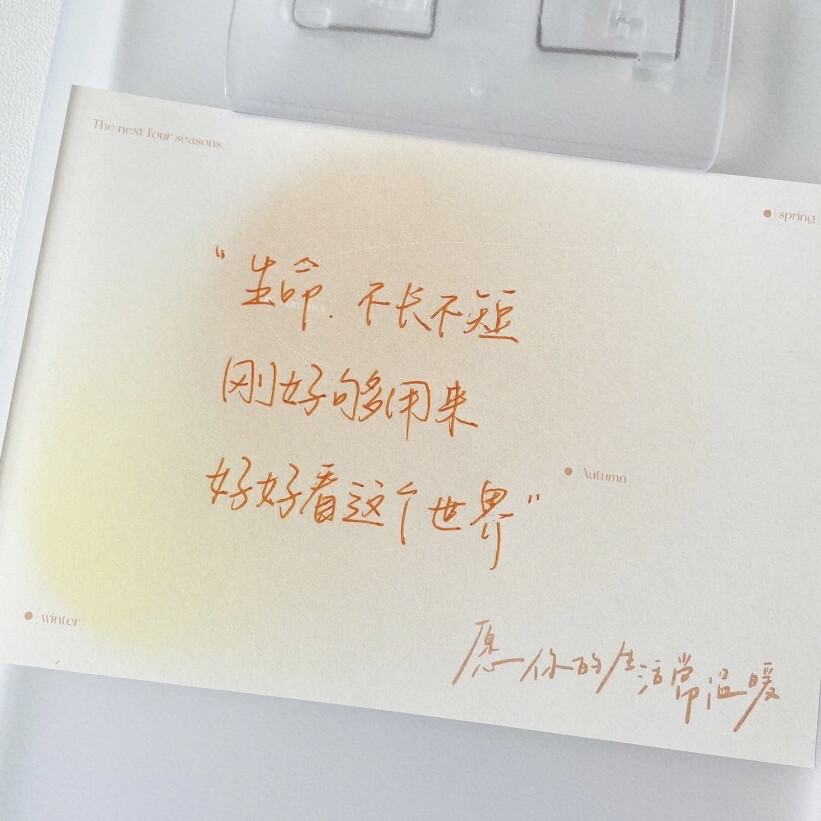 The next four seasons...
spring
"生命.不长不短
刚好够用来
好好看这个世界"
Autumn
winter
愿你的生活常温暖